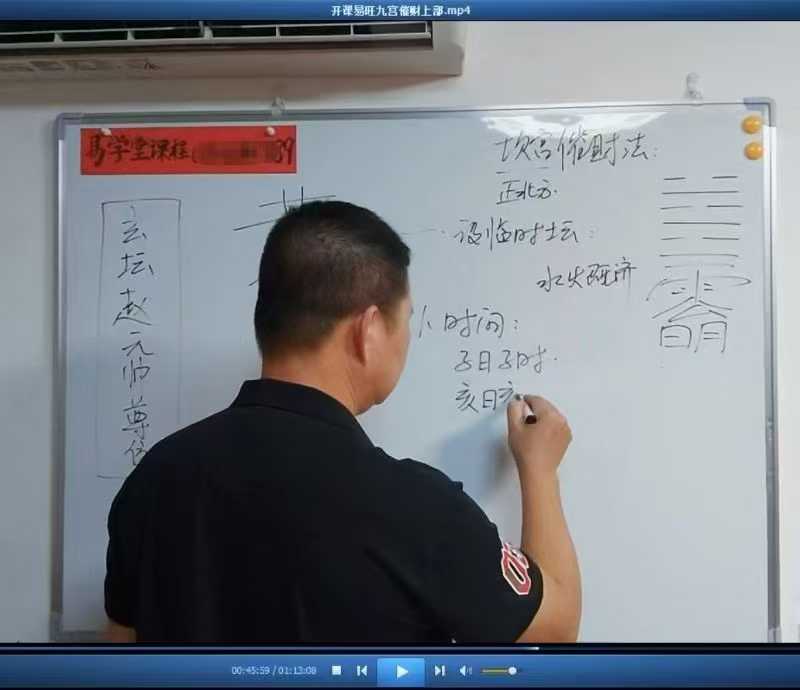 开课易旺九宫催财上部.mp4
馬学堂课程
坎宫催财法:
正北方.
设临时坛:
水火既济
时间:
子日子时.
亥日亥
玄坛赵元帅尊位
00:45:59 / 01:13:08